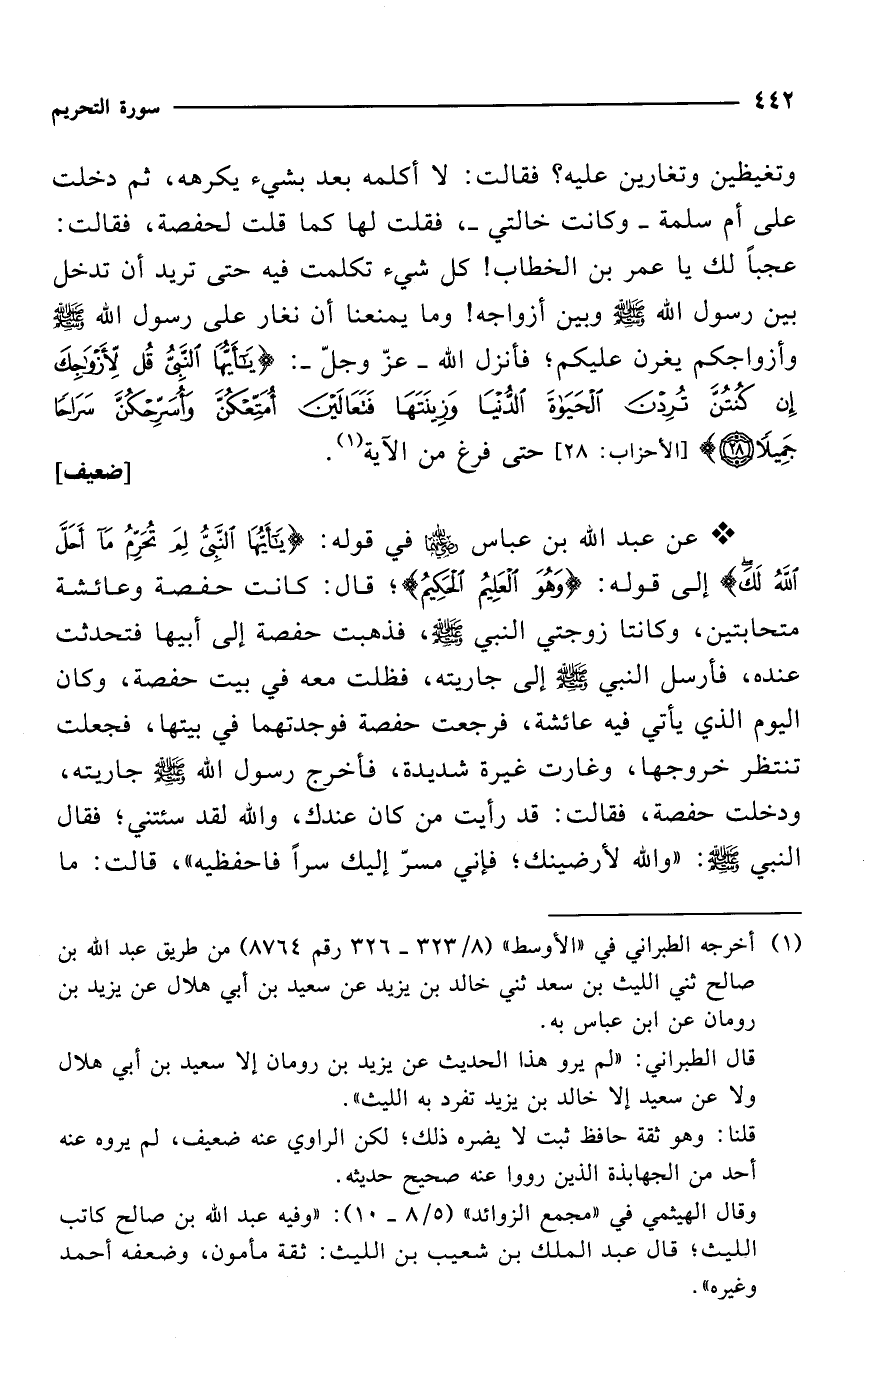 ٤٤٢ سورة التحريم
وتغيظين وتغارين عليه؟ فقالت: لا أكلمه بعد بشيء يكرهه، ثم دخلت
على أم سلمة ـ وكانت خالتي ـ، فقلت لها كما قلت لحفصة، فقالت:
عجباً لك يا عمر بن الخطاب! كل شيء تكلمت فيه حتى تريد أن تدخل
بين رسول الله ﷺ وبين أزواجه! وما يمنعنا أن نغار على رسول الله ﷺ
وأزواجكم يغرن عليكم؛ فأنزل الله ـ عزّ وجلّ ـ: ﴿يَٰٓأَيُّهَا ٱلنَّبِىُّ قُل لِّأَزْوَٰجِكَ
إِن كُنتُنَّ تُرِدْنَ ٱلْحَيَوٰةَ ٱلدُّنْيَا وَزِينَتَهَا فَتَعَالَيْنَ أُمَتِّعْكُنَّ وَأُسَرِّحْكُنَّ سَرَاحًا
جَمِيلًا ٢٨﴾ [الأحزاب: ٢٨] حتى فرغ من الآية(١).
[ضعيف]
❖ عن عبد الله بن عباس رضي الله عنهما في قوله: ﴿يَٰٓأَيُّهَا ٱلنَّبِىُّ لِمَ تُحَرِّمُ مَآ أَحَلَّ
ٱللَّهُ لَكَ﴾ إلى قوله: ﴿وَهُوَ ٱلْعَلِيمُ ٱلْحَكِيمُ﴾؛ قال: كانت حفصة وعائشة
متحابتين، وكانتا زوجتي النبي ﷺ، فذهبت حفصة إلى أبيها فتحدثت
عنده، فأرسل النبي ﷺ إلى جاريته، فظلت معه في بيت حفصة، وكان
اليوم الذي يأتي فيه عائشة، فرجعت حفصة فوجدتهما في بيتها، فجعلت
تنتظر خروجها، وغارت غيرة شديدة، فأخرج رسول الله ﷺ جاريته،
ودخلت حفصة، فقالت: قد رأيت من كان عندك، والله لقد سئتني؛ فقال
النبي ﷺ: «والله لأرضينك؛ فإني مسرّ إليك سراً فاحفظيه»، قالت: ما
(١) أخرجه الطبراني في «الأوسط» (٨/ ٣٢٣ ـ ٣٢٦ رقم ٨٧٦٤) من طريق عبد الله بن
صالح ثني الليث بن سعد ثني خالد بن يزيد عن سعيد بن أبي هلال عن يزيد بن
رومان عن ابن عباس به.
قال الطبراني: «لم يرو هذا الحديث عن يزيد بن رومان إلا سعيد بن أبي هلال
ولا عن سعيد إلا خالد بن يزيد تفرد به الليث».
قلنا: وهو ثقة حافظ ثبت لا يضره ذلك؛ لكن الراوي عنه ضعيف، لم يروه عنه
أحد من الجهابذة الذين رووا عنه صحيح حديثه.
وقال الهيثمي في «مجمع الزوائد» (٥/ ٨ ـ ١٠): «وفيه عبد الله بن صالح كاتب
الليث؛ قال عبد الملك بن شعيب بن الليث: ثقة مأمون، وضعفه أحمد
وغيره».